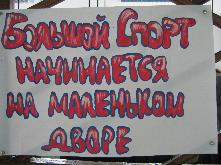 Большой Спорт
начинается
на маленьком
дворе